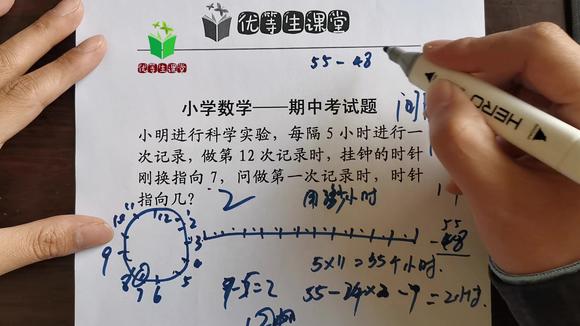 优等生课堂
优等生课堂
55-48
小学数学——期中考试题
间
小明进行科学实验，每隔5小时进行一
次记录，做第12次记录时，挂钟的时针
刚换指向7，问做第一次记录时，时针
指向几？
2
11 12 1
2
3
4
5
6
7
8
9
55
-48
5×11=55个小时.
9-5=2
55-24×2-7=2小时.